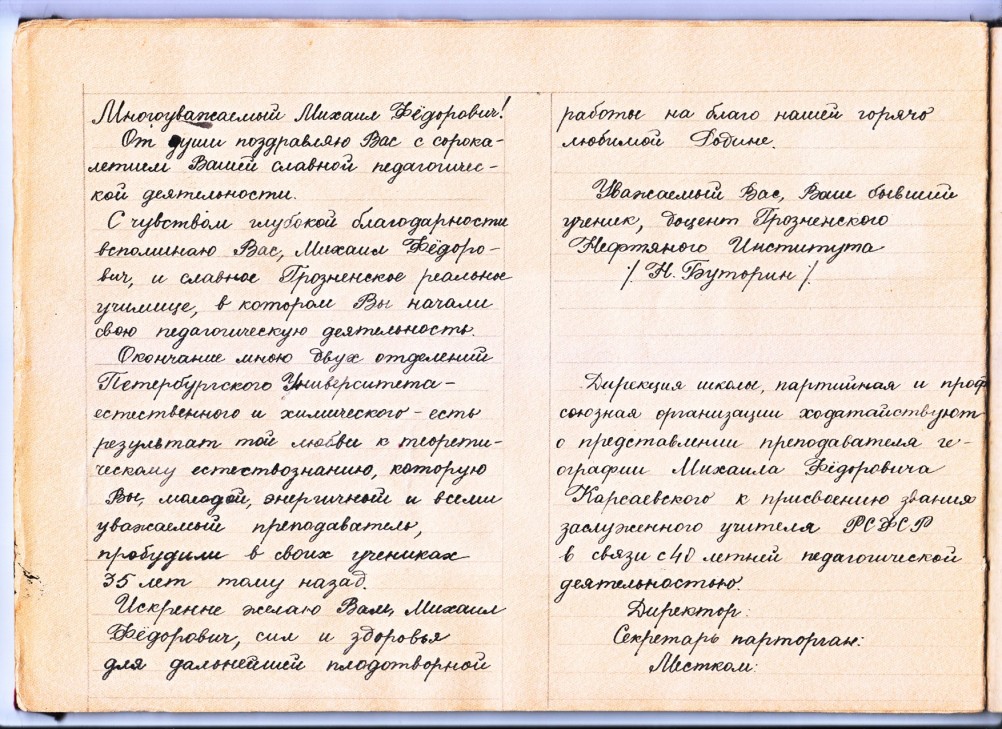 Многоуважаемый Михаил Фёдорович!
От души поздравляю Вас с сорока-
летием Вашей славной педагогичес-
кой деятельности.
С чувством глубокой благодарности
вспоминаю Вас, Михаил Фёдоро-
вич, и славное Грозненское реальное
училище, в котором Вы начали
свою педагогическую деятельность.
Окончание мною двух отделений
Петербургского Университета-
естественного и химического - есть
результат той любви к теорети-
ческому естествознанию, которую
Вы, молодой, энергичный и всеми
уважаемый преподаватель,
пробудили в своих учениках
35 лет тому назад.
Искренне желаю Вам, Михаил
Фёдорович, сил и здоровья
для дальнейшей плодотворной
работы на благо нашей горячо
любимой Родине.
Уважаемый Вас, Ваш бывший
ученик, доцент Грозненского
Нефтяного Института
/. Н. Буторин /.
Дирекция школы, партийная и проф
союзная организации ходатайствуют
о представлении преподавателя ге-
ографии Михаила Фёдоровича
Карсаевского к присвоению звания
заслуженного учителя РСФСР
в связи с 40 летней педагогической
деятельностью.
Директор:
Секретарь парторган:
Местком: